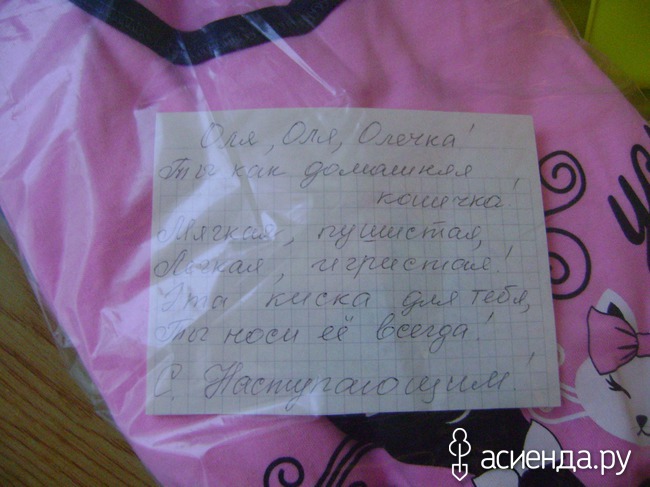 Оля, Оля, Олечка!
Ты как домашняя
кошечка!
Мягкая, пушистая,
Лёгкая, игристая!
Эта киска для тебя,
Ты носи её всегда!
С Наступающим!
асиенда.ру